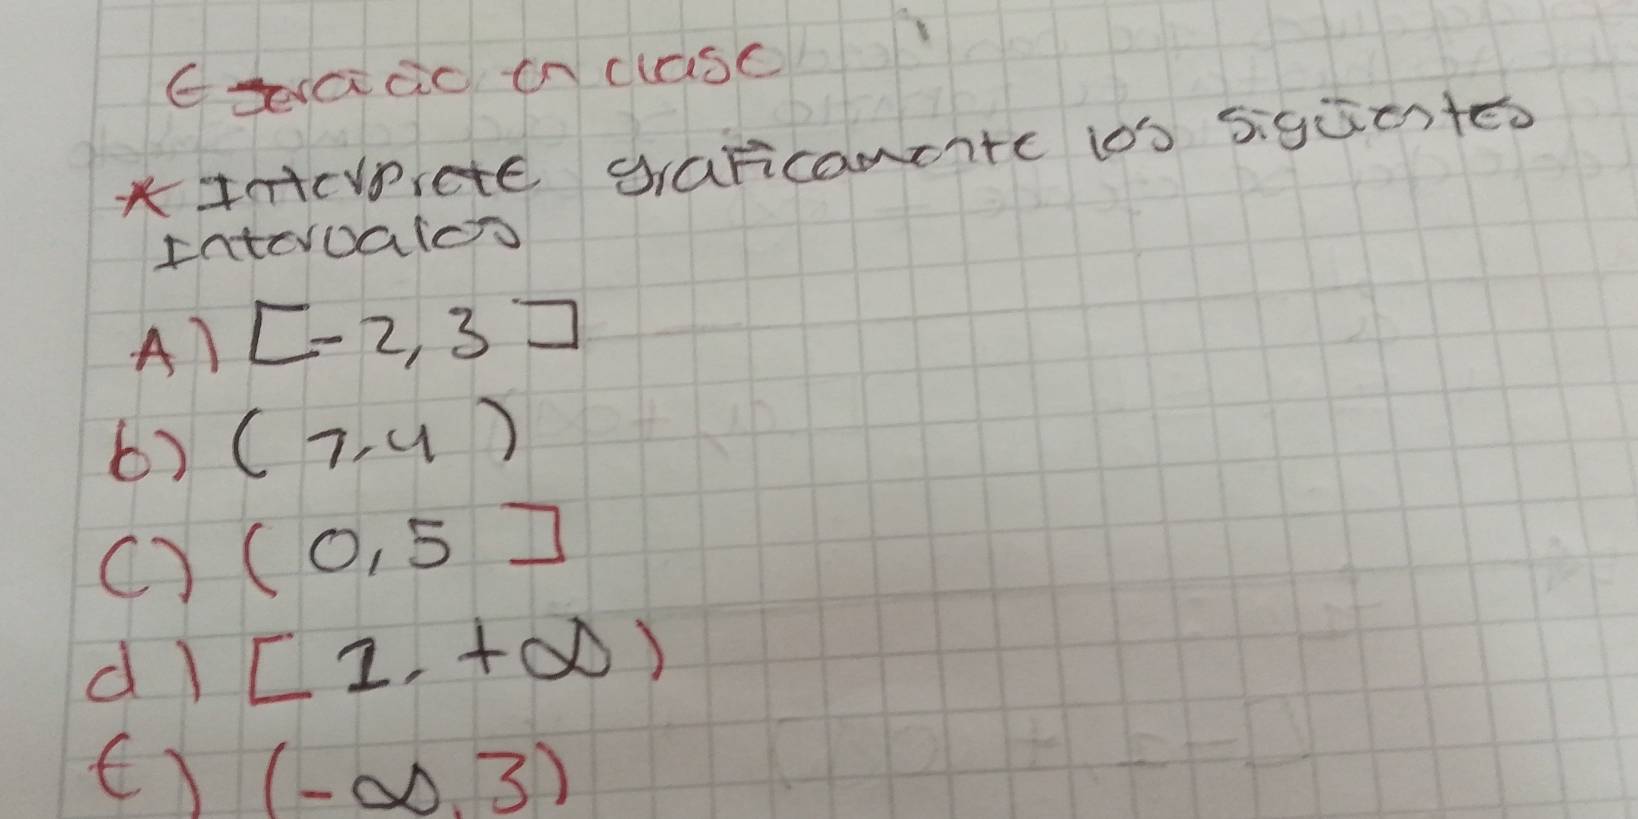 Ejercicio en clase
* Interprete graficamente los siguientes
Intervalos
A) [-2, 3]
b) (7, 4)
c) (0, 5]
d) [1, +∞)
E) (-∞, 3)